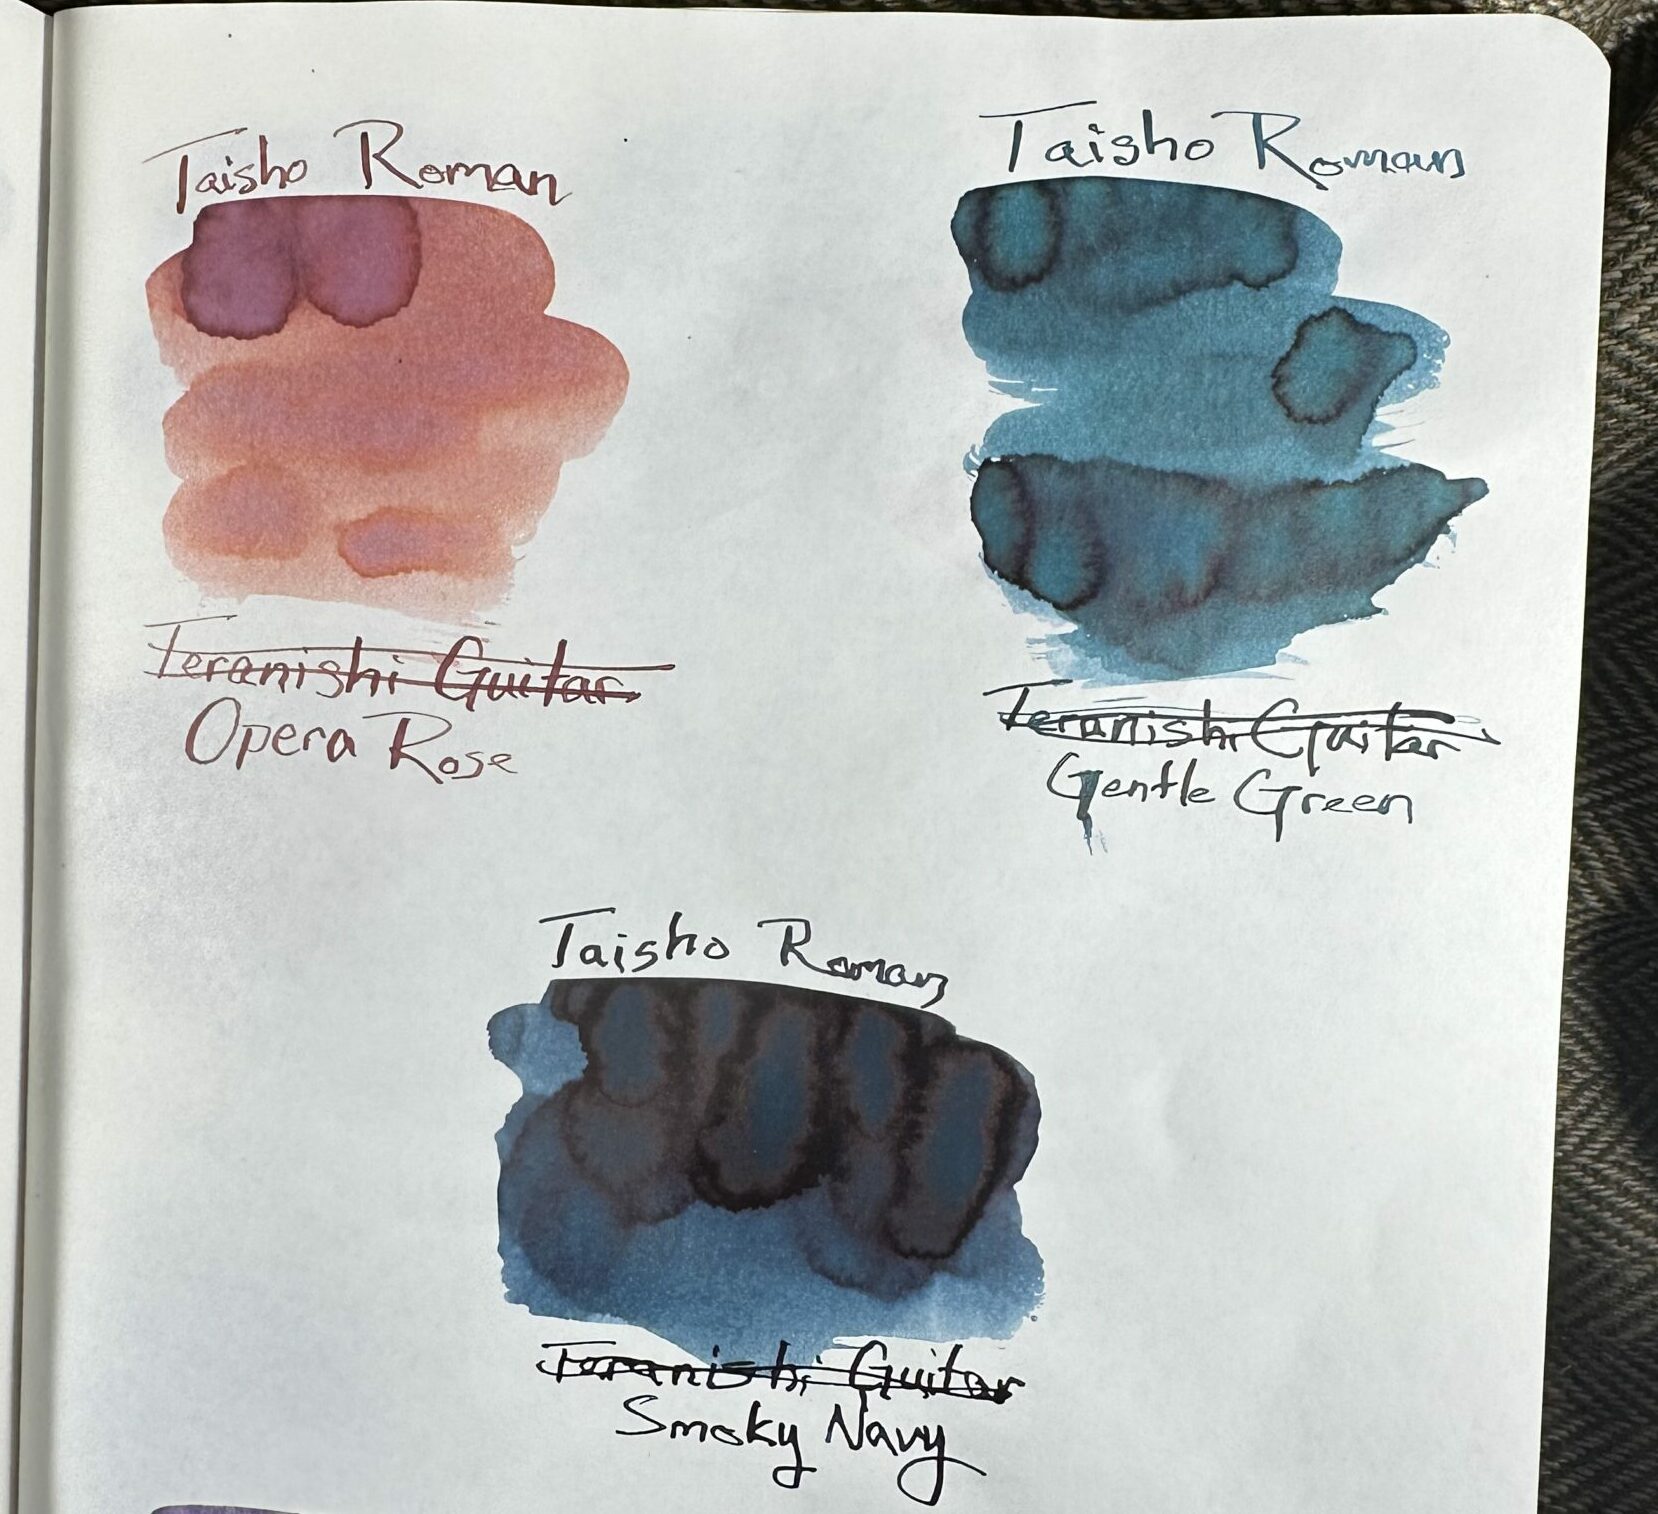 Taisho Roman
Teranishi Guitar
Opera Rose
Taisho Roman
Teranishi Guitar
Gentle Green
Taisho Roman
Teranishi Guitar
Smoky Navy